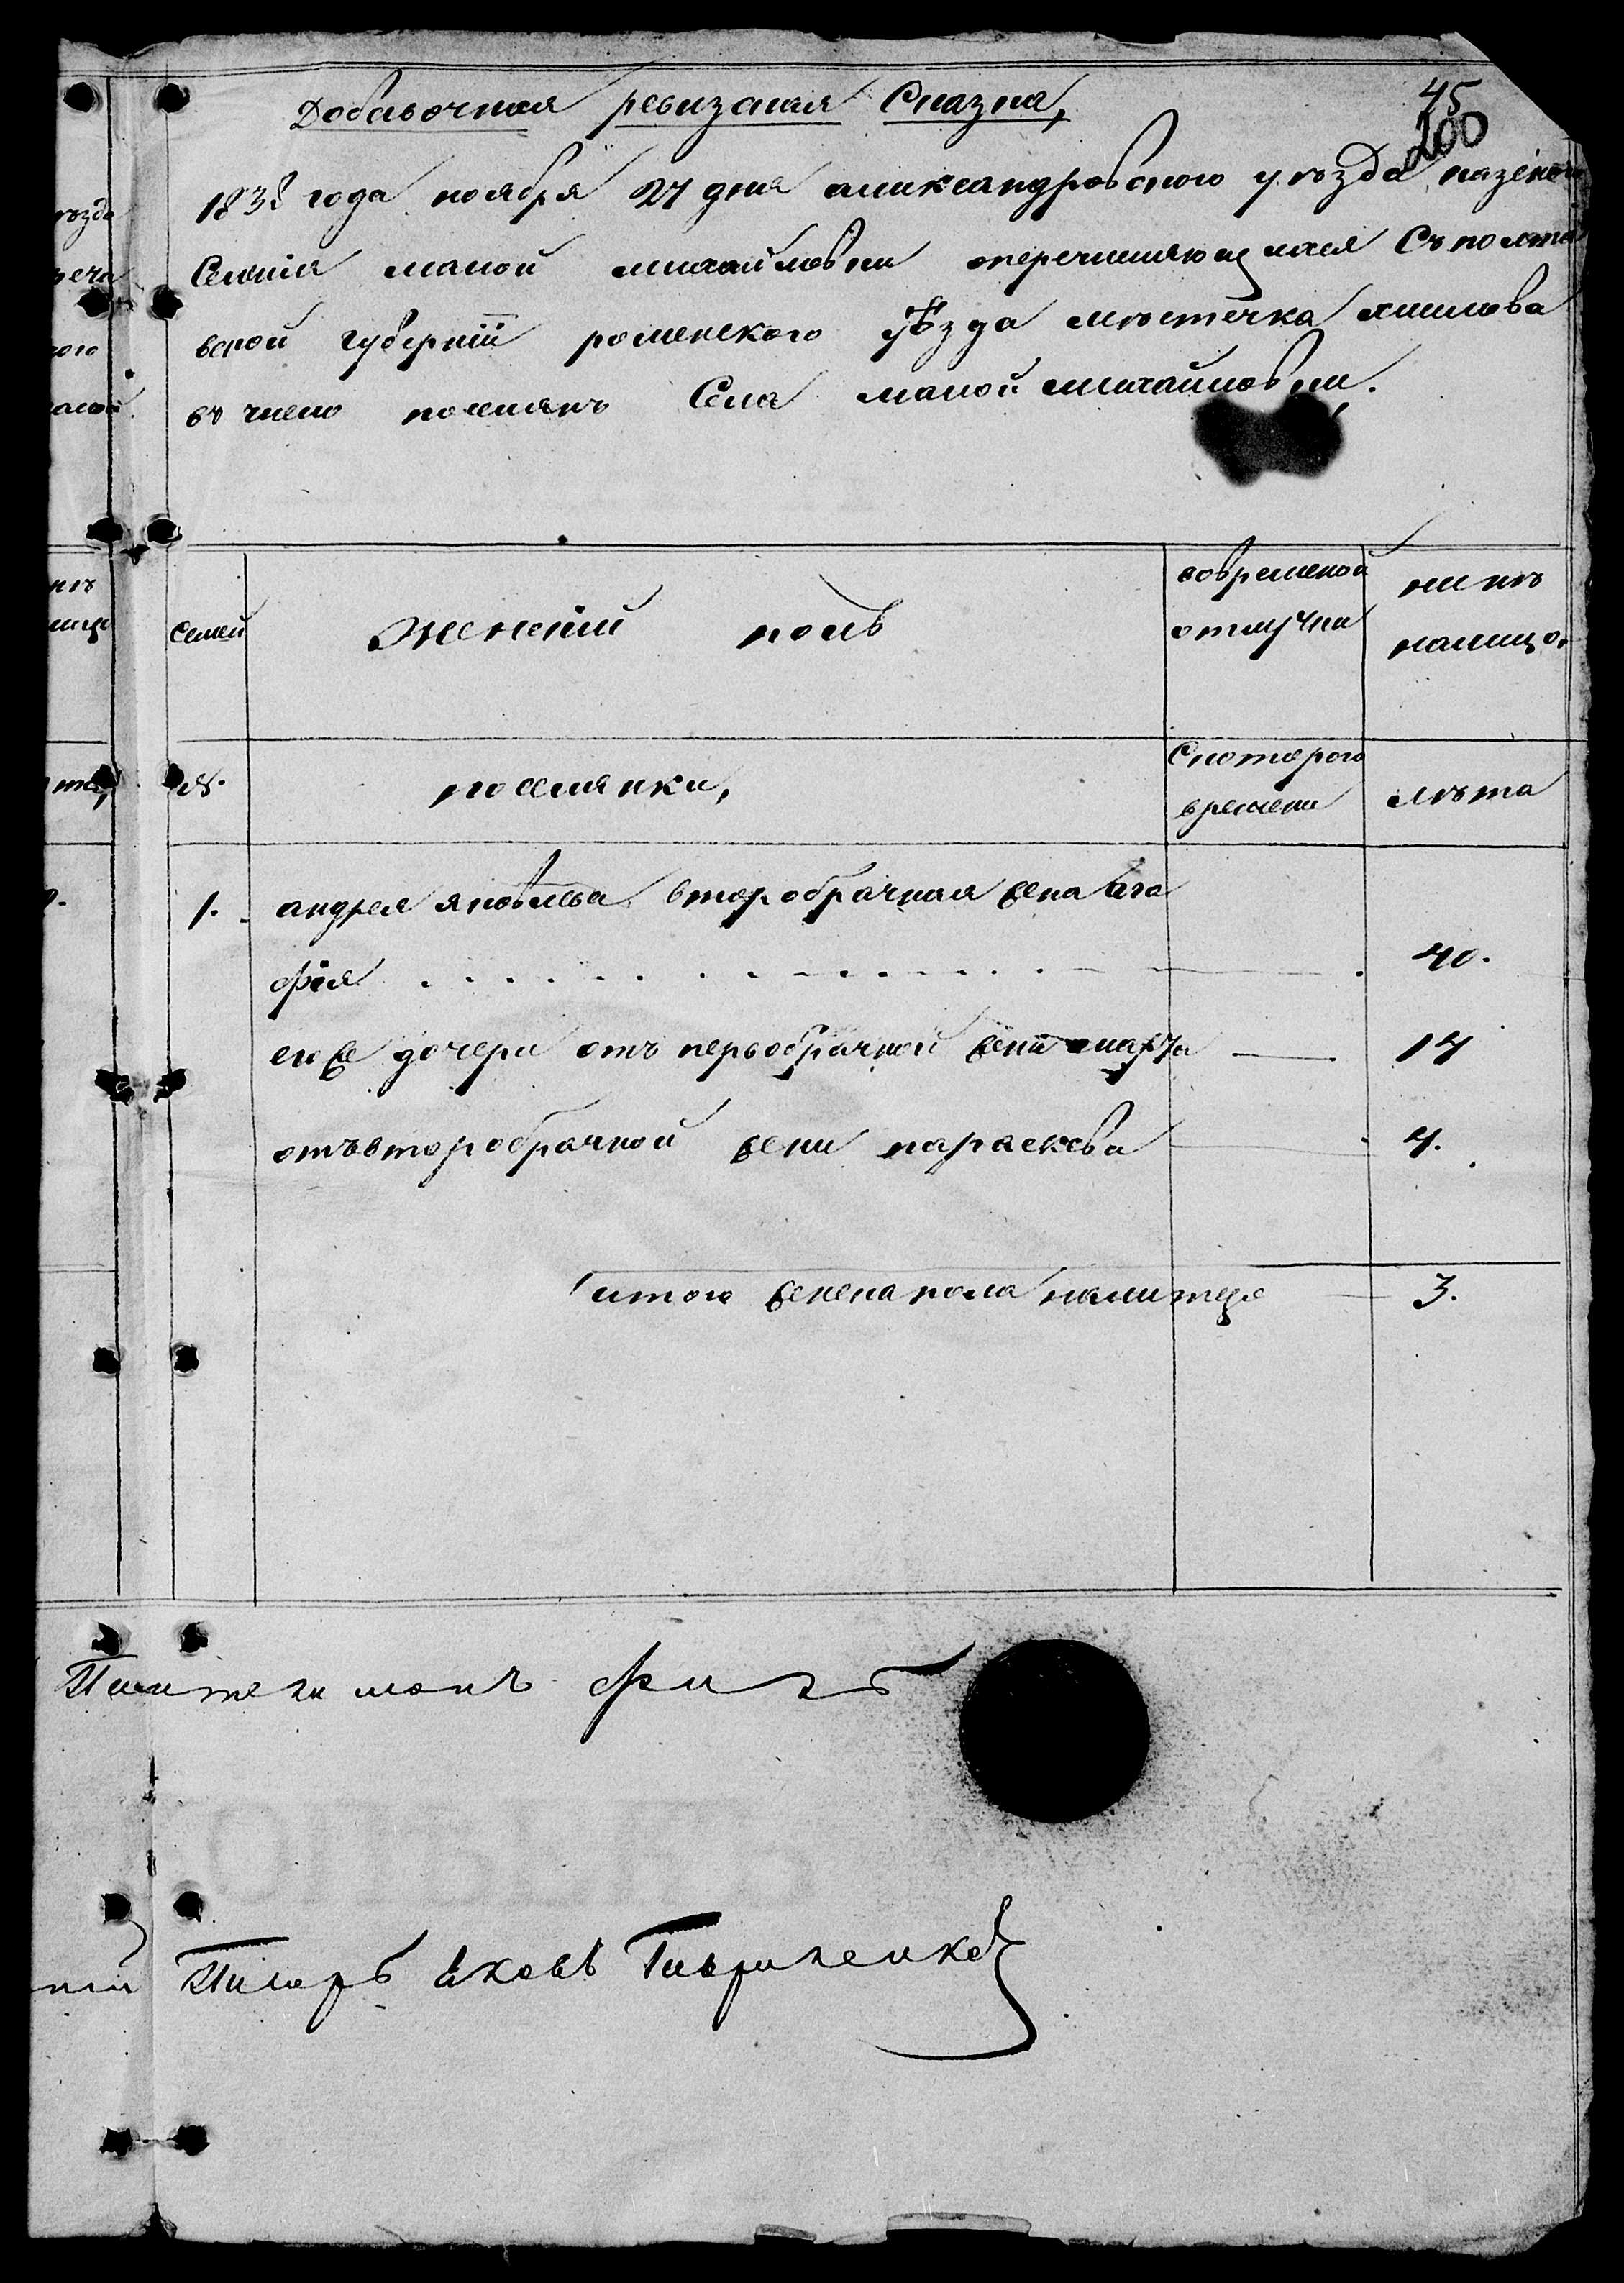 45
200
Добавочная ревизская Сказка,
1838 года ноября 27 дня александровского уѣзда казеного
Селенія малой михайловки перечисляющихся Съ полта
вской губерніи роменского уѣзда мѣстечка хмилова
въ число поселянъ Села малой михайловки.
Семей
Женскій полъ
вовременой
отлучки
нинѣ
налицо,
№.
поселянки,
Скоторого
времени
лѣта
1.
андрея яковлева второбрачная жена ага
фія
40.
его же дочери отъ первобрачной жени
17
отъвторобрачной жени параскева
4.
итого женска пола налицо
3.
Писарь Яковъ Гавриленко